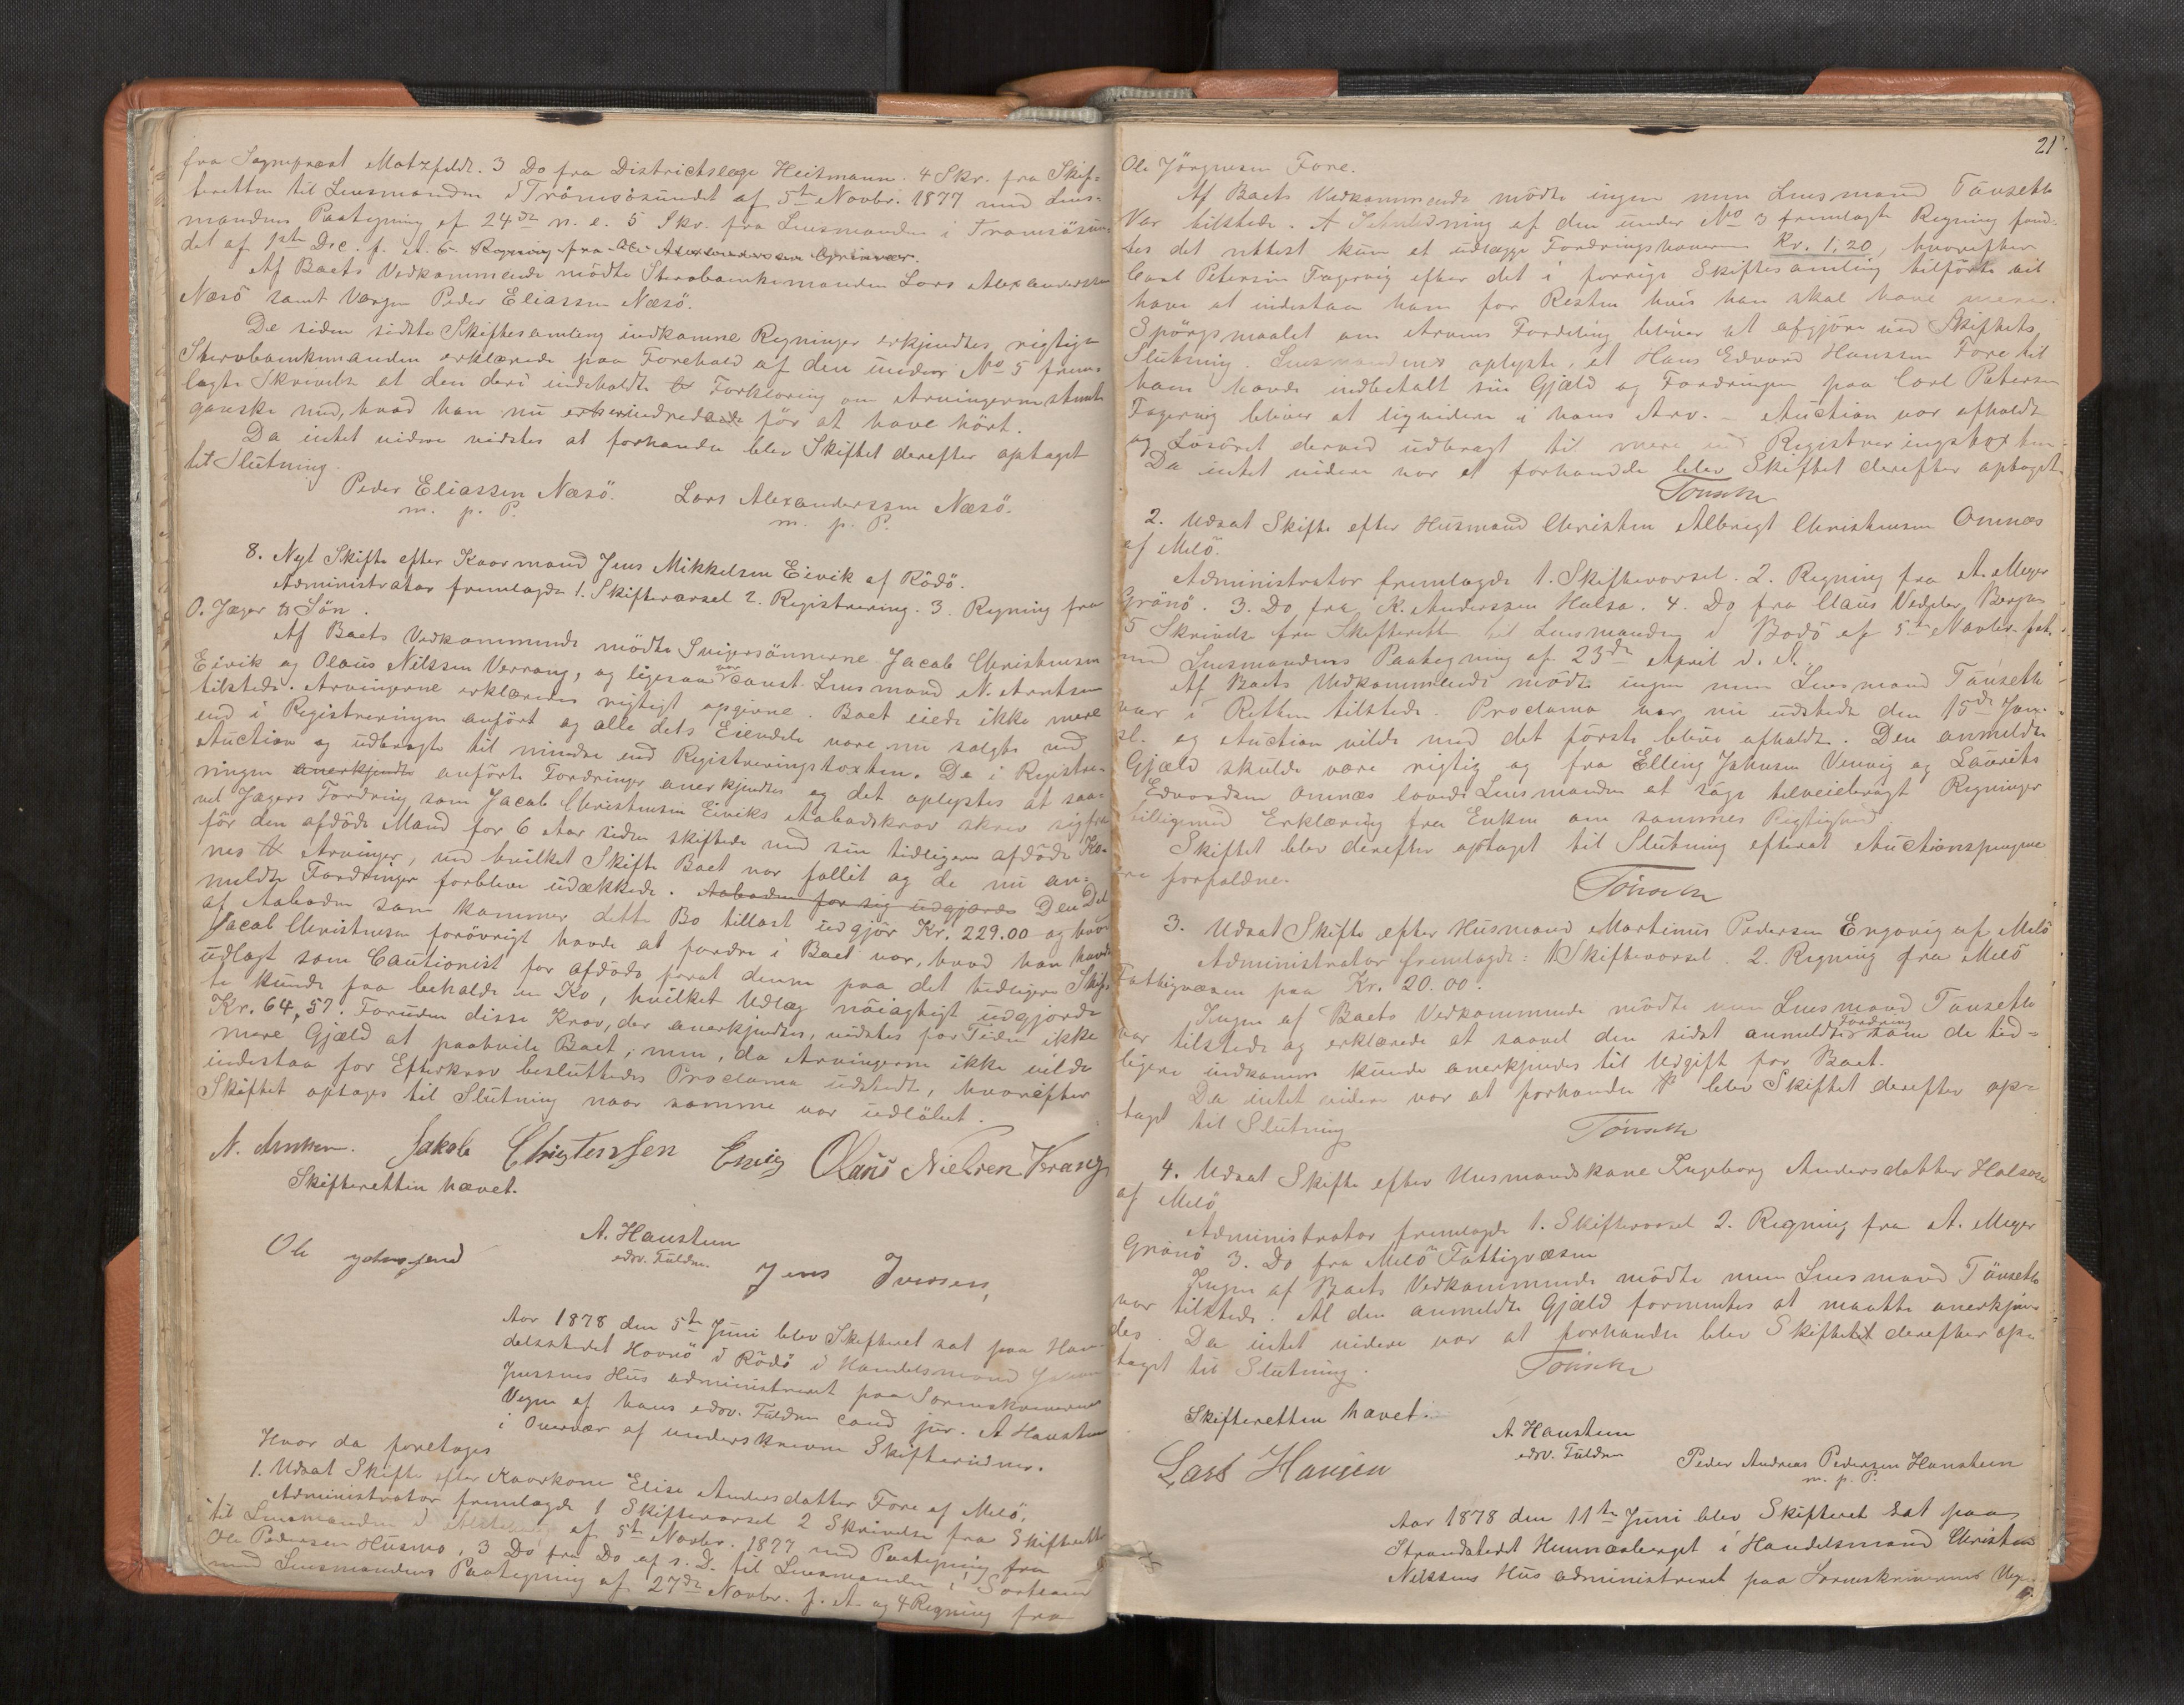 fra Sognepræst Motzfeldt. 3 Do fra Districtslæge Heitmann. 4 Skr. fra Skif-
teretten til Lensmanden i Tromsösundet af 5te Novbr. 1877 med Lens-
mandens Paategning af 24de n. e. 5 Skr. fra Lensmanden i Tromsösun-
det af 1ste Dec. f. A. 6. Regning fra Ole Alexanderssen
Af Boets Vedkommende mödte Stervboenkemanden Lars Alexanderssen
Næsö samt Værgen Peder Eliassen Næsö.
De siden sidste Skiftesamling indkomne Regninger erkjendtes rigtige
Stervboenkemanden erklærede paa Forehold af den under No 5 frem-
lagte Skrivelse at den deri indeholdte Forklaring om Arvingerne stemte
ganske med, hvad han nu erherindrede för at have hört.
Da intet videre vidstes at forhandle blev Skiftet derefter optaget
til Slutning.
Peder Eliassen Næsö. Lars Alexanderssen Næsö.
m. p. P. m. p. P.
8. Nyt Skifte efter Kaarmand Jens Mikkelsen Eivik af Rödö.
Administrator fremlagde 1. Skiftevarsel 2. Registrering. 3. Regning fra
O. Jæger & Sön.
Af Boets Vedkommende mödte Svigersönnerne Jacob Christensen
Eivik og Olaus Nilssen Værrang, og ligesaa var const. Lensmand N. Arntsen
tilstede. Arvingerne erklæredes rigtigt opgivne. Boet eiede ikke mere
end i Registreringen anfört og alle dets Eiendele vare nu solgte ved
Auction og udbragte til mindre end Registreringstaxten. De i Registre-
ringen anerkjendte anförte Fordringer anerkjendtes og det oplystes at saa-
vel Jægers Fordring, som Jacob Christensen Eiviks Aabodskrav skrev sig fra
för den afdöde Mand for 6 Aar siden skiftede med sin tidligere afdöde Ko-
nes Arvinger, ved hvilket Skifte Boet var fallit og de nu an-
meldte Fordringer forbleve udækkede. Aaboden for sig udgjorde Den Del
af Aaboden som kommer dette Bo tillast udgjör Kr. 229.00 og hvad
Jacob Christensen forövrigt havde at fordre i Boet var, hvad han havde
udlagt som Cautionist for afdöde forat denne paa det tidligere Skif-
te kunde faa beholde en Ko, hvilket Udlæg nöiagtigt udgjorde
Kr. 64,57. Foruden disse Krav, der anerkjendtes, vidstes for Tiden ikke
mere Gjæld at paahvile Boet; men, da Arvingerne ikke vilde
indestaa for Efterkrav besluttedes Proclama udstedt, hvorefter
Skiftet optages til Slutning naar samme var udlöbet.
N. Arntsen. Jakob Christensen Eivig Olaus Nielsen Værang
Skifteretten hævet.
A. Haustem
edsv. Fuldm.
Ole Jens Iversen,
Aar 1878 den 5te Juni blev Skifteret sat paa Han-
delsstedet Havnö i Rödö i Handelsmand
Jenssens Hus administreret paa Sorenskriverens
Vegne af hans edsv. Fuldm cand jur. A Haustem
i Overvær af underskrevne Skiftevidner.
Hvor da foretoges
1. Udsat Skifte efter Kaarkone Elise Andersdatter Fore af Melö.
Administrator fremlagde 1 Skiftevarsel 2 Skrivelse fra Skifteretten
til Lensmanden i af 5te Novbr. 1877 med Paategning fra
Ole Pedersen Husmo, 3 Do fra Do af s. D. til Lensmanden i Sortland
med Lensmandens Paategning af 27de Novbr. f. A. og 4 Regning fra
21.
Ole Jörgensen Fore.
Af Boets Vedkommende mödte ingen men Lensmand Tönseth
var tilstede. I Anledning af den under No 3 fremlagte Regning fand-
tes det rettest kun at udlægge Fordringshaveren Kr. 1,20, hvorefter
Carl Petersen Fagervig efter det i forrige Skiftesamling tilförte vil
have at indestaa ham for Resten hvis han skal have mere.
Spörgsmaalet om Arvens Fordeling bliver at afgjöre ved Skiftets
Slutning. Lensmanden oplyste, at Hans Edvard Hanssen Fore til
ham havde indbetalt sin Gjæld og Fordringen paa Carl Petersen
Fagervig bliver at liqvidere i hans Arv. – Auction var afholdt
og Lösöret derved udbragt til mere end Registreringstaxten.
Da intet videre var at forhandle blev Skiftet derefter optaget.
Tönseth
2. Udsat Skifte efter Husmand Christen Albregt Christensen Omnæs
af Melö.
Administrator fremlagde 1. Skiftevarsel. 2. Regning fra A. Meyer
Grönö. 3. Do fra K. Anderssen Halsa. 4. Do fra Claus Vedeler Bergen
5 Skrivelse fra Skifteretten til Lensmanden i Bodö af 5te Novbr f. A.
med Lensmandens Paategning af 23de April d. A.
Af Boets Vedkommende mödte ingen men Lensmand Tönseth
var i Retten tilstede. Proclama var nu udstedt den 15de Jan.
sl. og Auction vilde med det förste blive afholdt. Den anmeldte
Gjæld skulde være rigtig og fra Elling Johnsen Venvig og Laurits
Edvardsen Omnæs lovede Lensmanden at söge tilveiebragt Regninger
tilligemed Erklæring fra Enken om sammes Rigtighed.
Skiftet blev derefter optaget til Slutning efterat Auctionspengene
ere forfaldne.
Tönseth
3. Udsat Skifte efter Husmand Martinus Pedersen Engavig af Melö
Administrator fremlagde: 1 Skiftevarsel. 2. Regning fra Melö
Fattigvæsen paa Kr. 20.00.
Ingen af Boets Vedkommende mödte men Lensmand Tönseth
var tilstede og erklærede at saavel den sidst anmeldte Fordring som de tid-
ligere indkomne kunde anerkjendes til Udgift for Boet.
Da intet videre var at forhandle blev Skiftet derefter op-
taget til Slutning
Tönseth
4. Udsat Skifte efter Husmandskone Ingeborg Andersdatter Halsen
af Melö
Administrator fremlagde 1. Skiftevarsel 2. Regning fra A. Meyer
Grönö 3. Do fra Melö Fattigvæsen
Ingen af Boets Vedkommende mödte men Lensmand Tönseth
var tilstede. Al den anmeldte Gjæld formentes at maatte anerkjen-
des. Da intet videre var at forhandle blev Skiftet derefter op-
taget til Slutning.
Tönseth
Skifteretten hævet.
A Haustem
edsv. Fuldm
Lars Hansen Peder Andreas Pedersen Hanstein
m. p. P.
Aar 1878 den 11te Juni blev Skifteret sat paa
Strandstedet Hemnæsberget i Handelsmand Christen
Nilssens Hus administreret paa Sorenskriverens Veg-